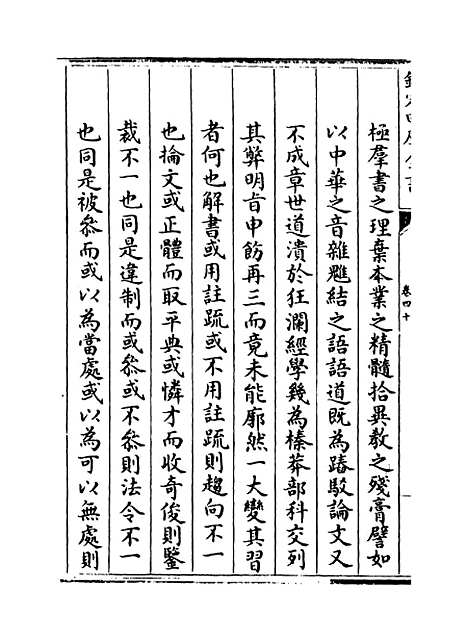 欽定四庫全書
卷四十
極羣書之理棄本業之精髓拾異教之殘膏譬如
以中華之音雜魋結之語語道既為踳駁論文又
不成章世道潰於狂瀾經學幾為榛莽部科交列
其弊明旨申飭再三而竟未能廓然一大變其習
者何也解書或用註疏或不用註疏則趨向不一
也掄文或正體而取平典或憐才而收奇俊則鑒
裁不一也同是違制而或叅或不叅則法令不一
也同是被叅而或以為當處或以為可以無處則